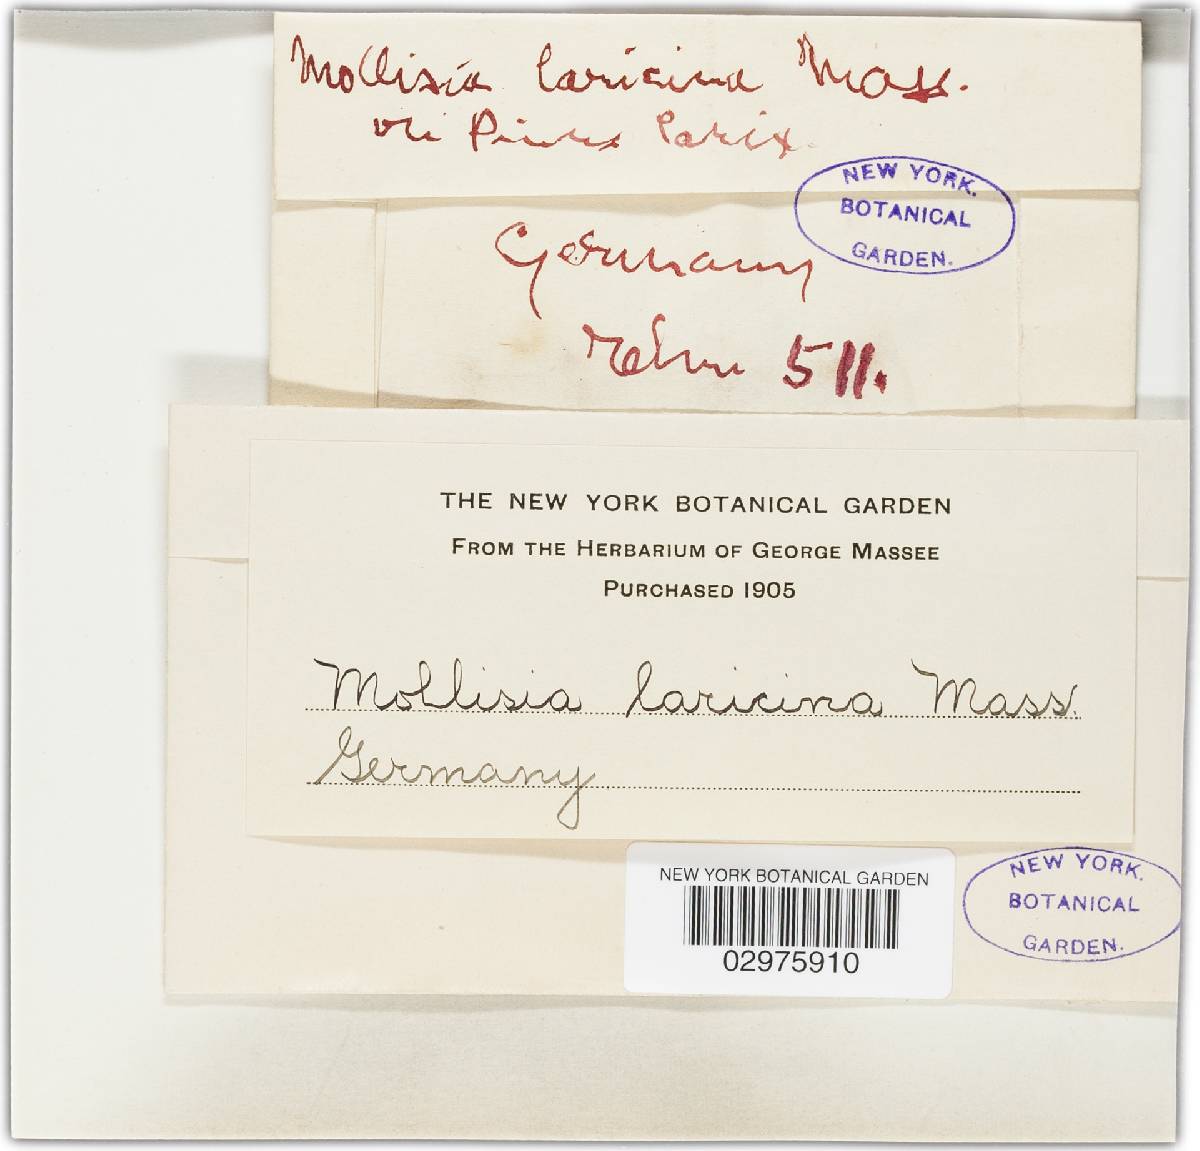 Mollisia laricina Mass.
on Pinus Larix.
NEW YORK.
BOTANICAL
GARDEN.
Germany
Rehm 511.
THE NEW YORK BOTANICAL GARDEN
FROM THE HERBARIUM OF GEORGE MASSEE
PURCHASED 1905
Mollisia laricina Mass.
Germany
NEW YORK BOTANICAL GARDEN
02975910
NEW YORK.
BOTANICAL
GARDEN.